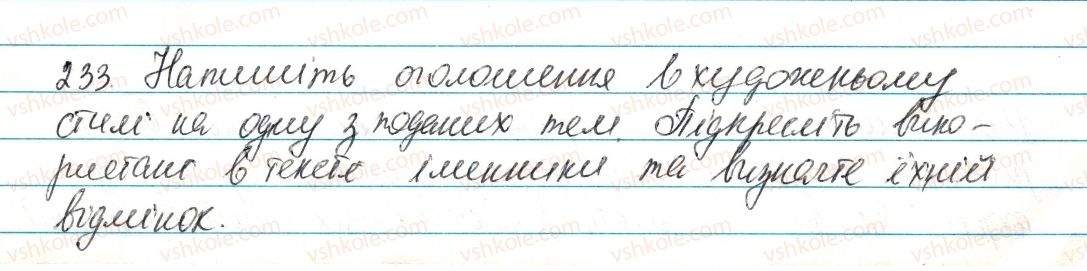 233. Напишіть оголошення в художньому
стилі на одну з поданих тем. Підкресліть вико-
ристані в тексті іменники та визначте їхній
відмінок.